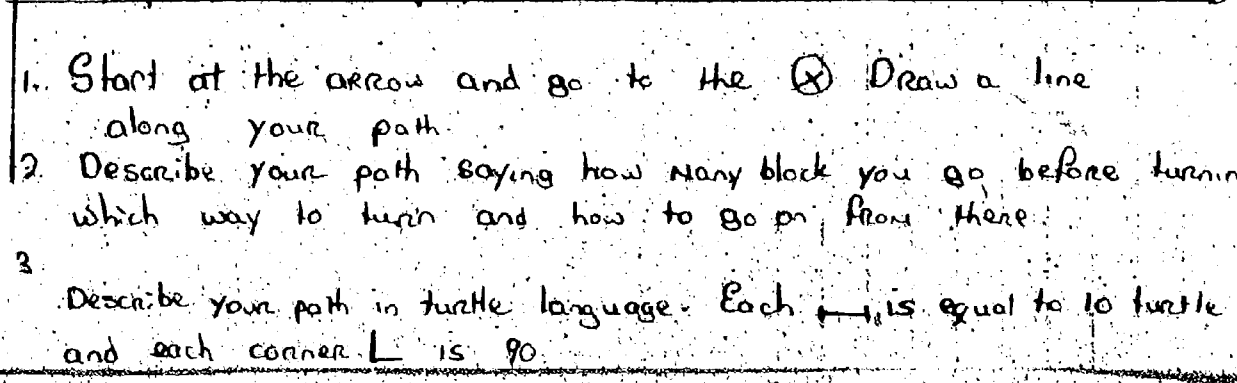 1. Start at the arrow and go to the ⓧ Draw a line
along your path.
2. Describe your path saying how many block you go before turnin
which way to turn and how to go on from there.
3
Describe your path in turtle language. Each ⊢⊣ is equal to 10 turtle
and each corner L is 90